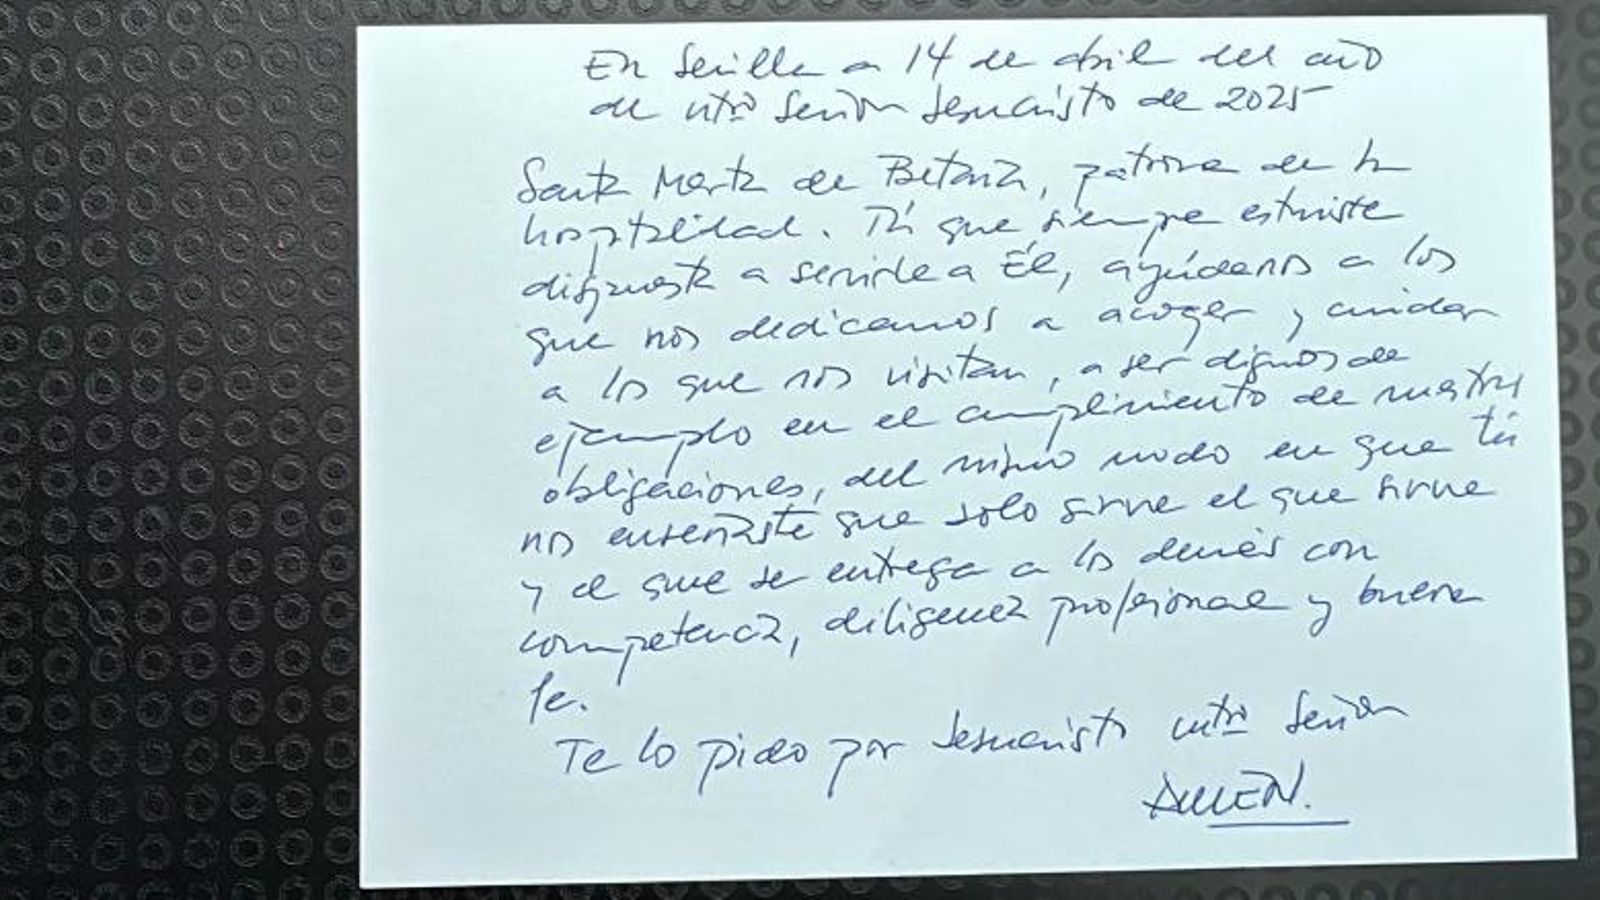 En Sevilla a 14 de abril del año
de ntro Señor Jesucristo de 2025
Santa Marta de Betania, patrona de la
hospitalidad. Tú que siempre estuviste
dispuesta a servirle a Él, ayúdanos a los
que nos dedicamos a acoger y cuidar
a los que nos visitan, a ser dignos de
ejemplo en el cumplimiento de nuestras
obligaciones, del mismo modo en que tú
nos enseñaste que solo sirve el que sirve
y el que se entrega a los demás con
competencia, diligencia profesional y buena
fe.
Te lo pido por Jesucristo ntro Señor
AMÉN.